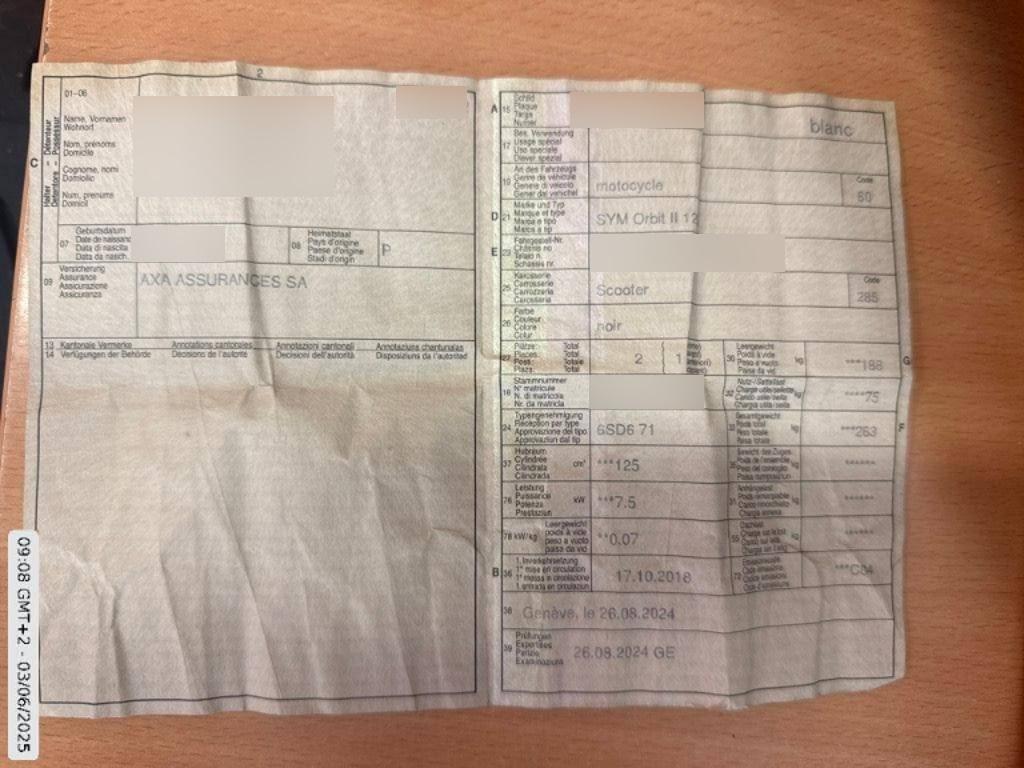 2
01-06
Halter - Détenteur
Detentore - Possessur
C
Name, Vornamen
Wohnort
Nom, prénoms
Domicile
Cognome, nomi
Domicilio
Num, prenums
Domicil
07
Geburtsdatum
Date de naissanc
Data di nascita
Data da nasch.
08
Heimatstaat
Pays d'origine
Paese d'origine
Stadi d'origin
P
09
Versicherung
Assurance
Assicurazione
Assicuranza
AXA ASSURANCES SA
13 Kantonale Vermerke Annotations cantonales Annotazioni cantonali Annotaziuns chantunalas
14 Verfügungen der Behörde Décisions de l'autorité Decisioni dell'autorità Disposiziuns da l'autoritad
A 15
Schild
Plaque
Targa
Numer
blanc
17
Bes. Verwendung
Usage spécial
Uso speciale
Diever spezial
19
Art des Fahrzeugs
Genre de véhicule
Genere di veicolo
Gener dal vehichel
motocycle
Code
60
D 21
Marke und Typ
Marque et type
Marca e tipo
Marca e tip
SYM Orbit II 12
E 23
Fahrgestell-Nr.
Châssis no
Telaio n.
Schassis nr.
25
Karosserie
Carrosserie
Carrozzeria
Carossaria
Scooter
Code
285
26
Farbe
Couleur
Colore
Colur
noir
27
Plätze: Total
Places: Total
Posti: Totale
Plazs: Total
2
1
30
Leergewicht
Poids à vide
Peso a vuoto
Paisa da vid
kg
***188
G
18
Stammnummer
N° matricule
N. di matricola
Nr. da matricla
32
Nutz-/Sattellast
Charge utile/sellette
Carico utile/sella
Chargia utila/sella
kg
****75
24
Typengenehmigung
Réception par type
Approvazione del tipo
Approvaziun dal tip
6SD6 71
33
Gesamtgewicht
Poids total
Peso totale
Paisa totala
kg
***263
F
37
Hubraum
Cylindrée
Cilindrata
Cilindrada
cm³
***125
35
Gewicht des Zuges
Poids de l'ensemble
Peso del convoglio
Paisa cumposiziun
kg
******
76
Leistung
Puissance
Potenza
Prestaziun
kW
***7.5
31
Anhängelast
Poids remorquable
Carico rimorchiato
Chargia annexa
kg
******
78 kW/kg
Leergewicht
poids à vide
peso a vuoto
paisa da vid
**0.07
55
Dachlast
Charge sur le toit
Carico sul tetto
Chargia sin il tetg
kg
******
B 36
1. Inverkehrsetzung
1re mise en circulation
1a messa in circolazione
1. entrada en circulaziun
17.10.2018
72
Emissionscode
Code émissions
Codice emissioni
Code d'emissiuns
***C04
38
Genève, le 26.08.2024
39
Prüfungen
Expertises
Perizie
Examinaziuns
26.08.2024 GE
09:08 GMT+2 - 03/06/2025